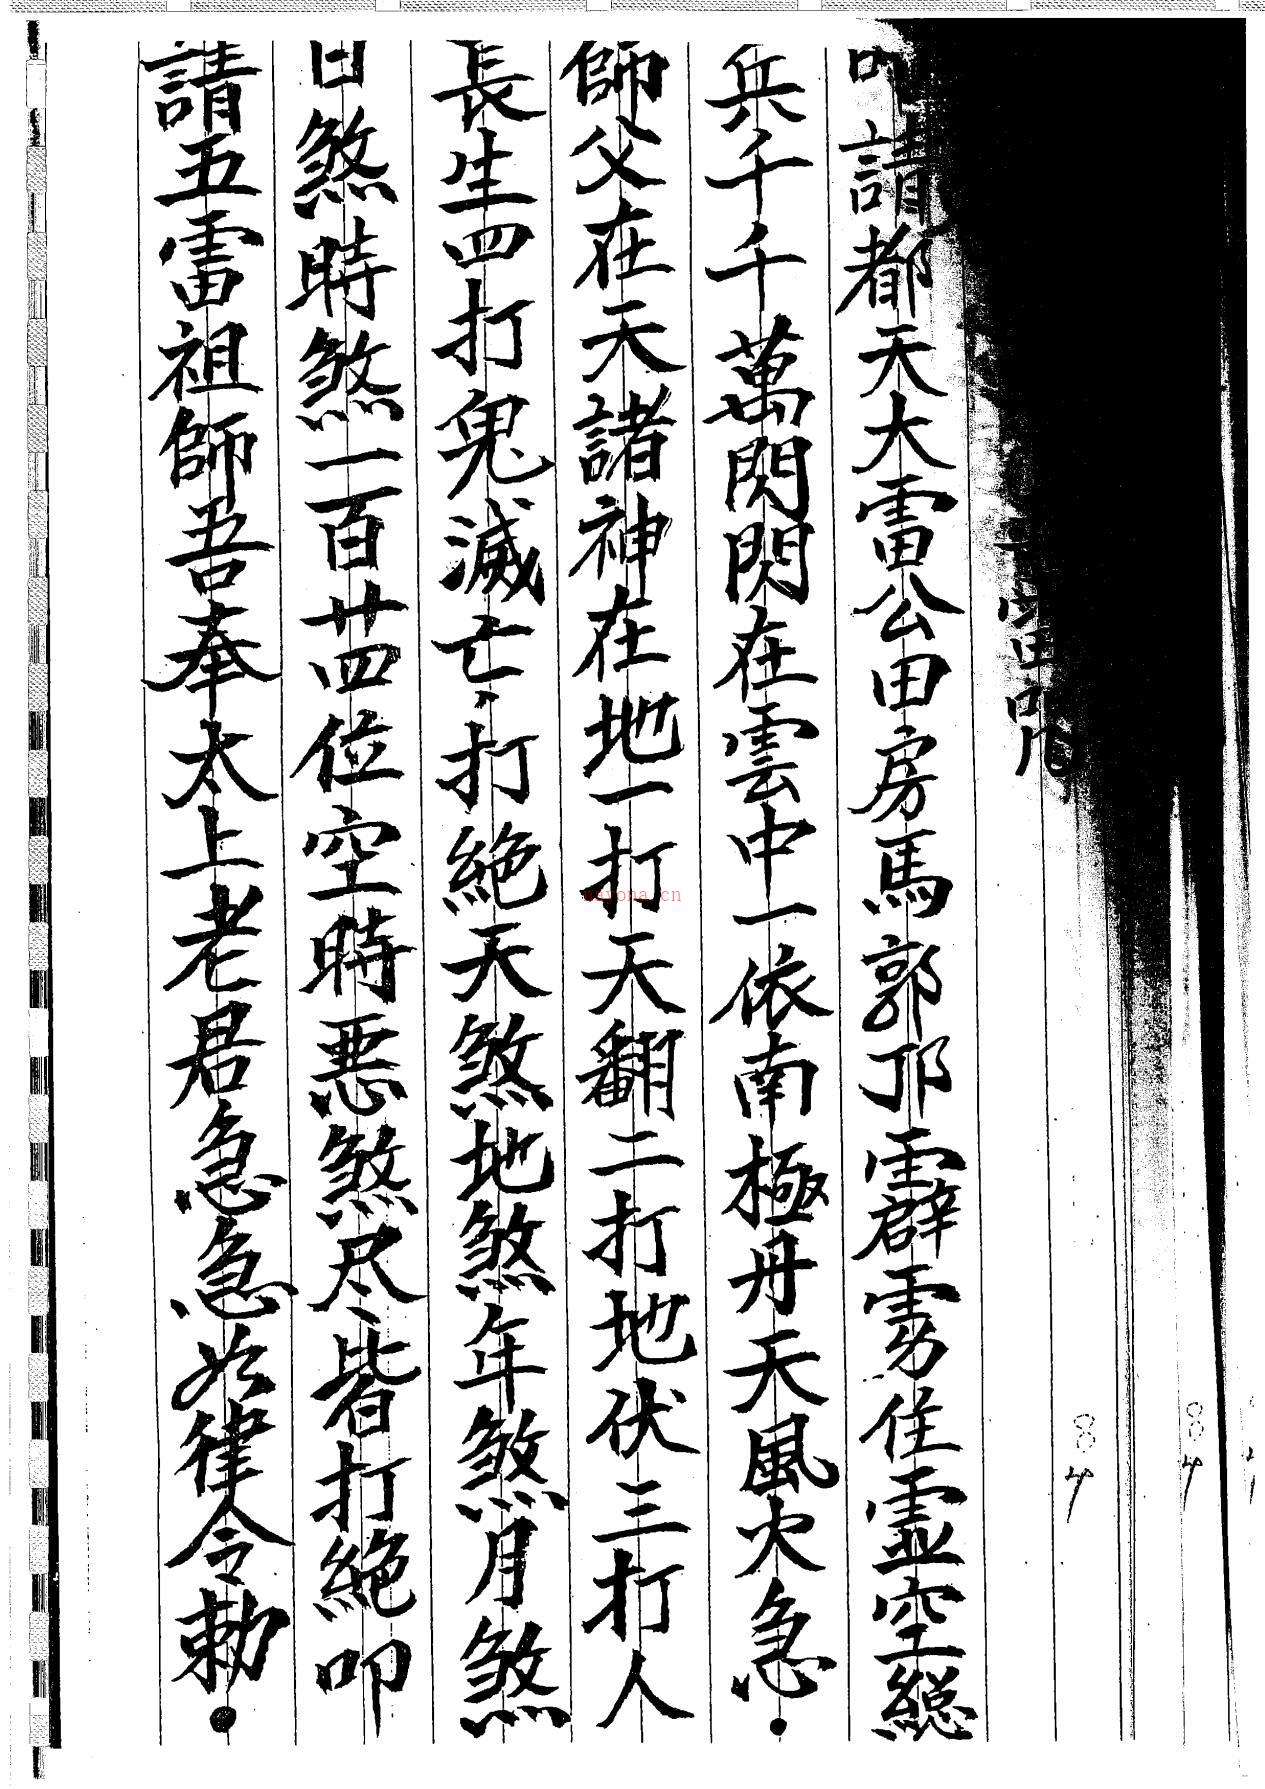 雷咒
叩請都天大雷公田房馬郭邓霹雳住霊空総
兵千千萬閃閃在雲中一依南極丹天風火急
師父在天諸神在地一打天翻二打地伏三打人
長生四打鬼滅亡打絶天煞地煞年煞月煞
日煞時煞一百廿四位空時悪煞尽皆打絶叩
請五雷祖師吾奉太上老君急急如律令勅